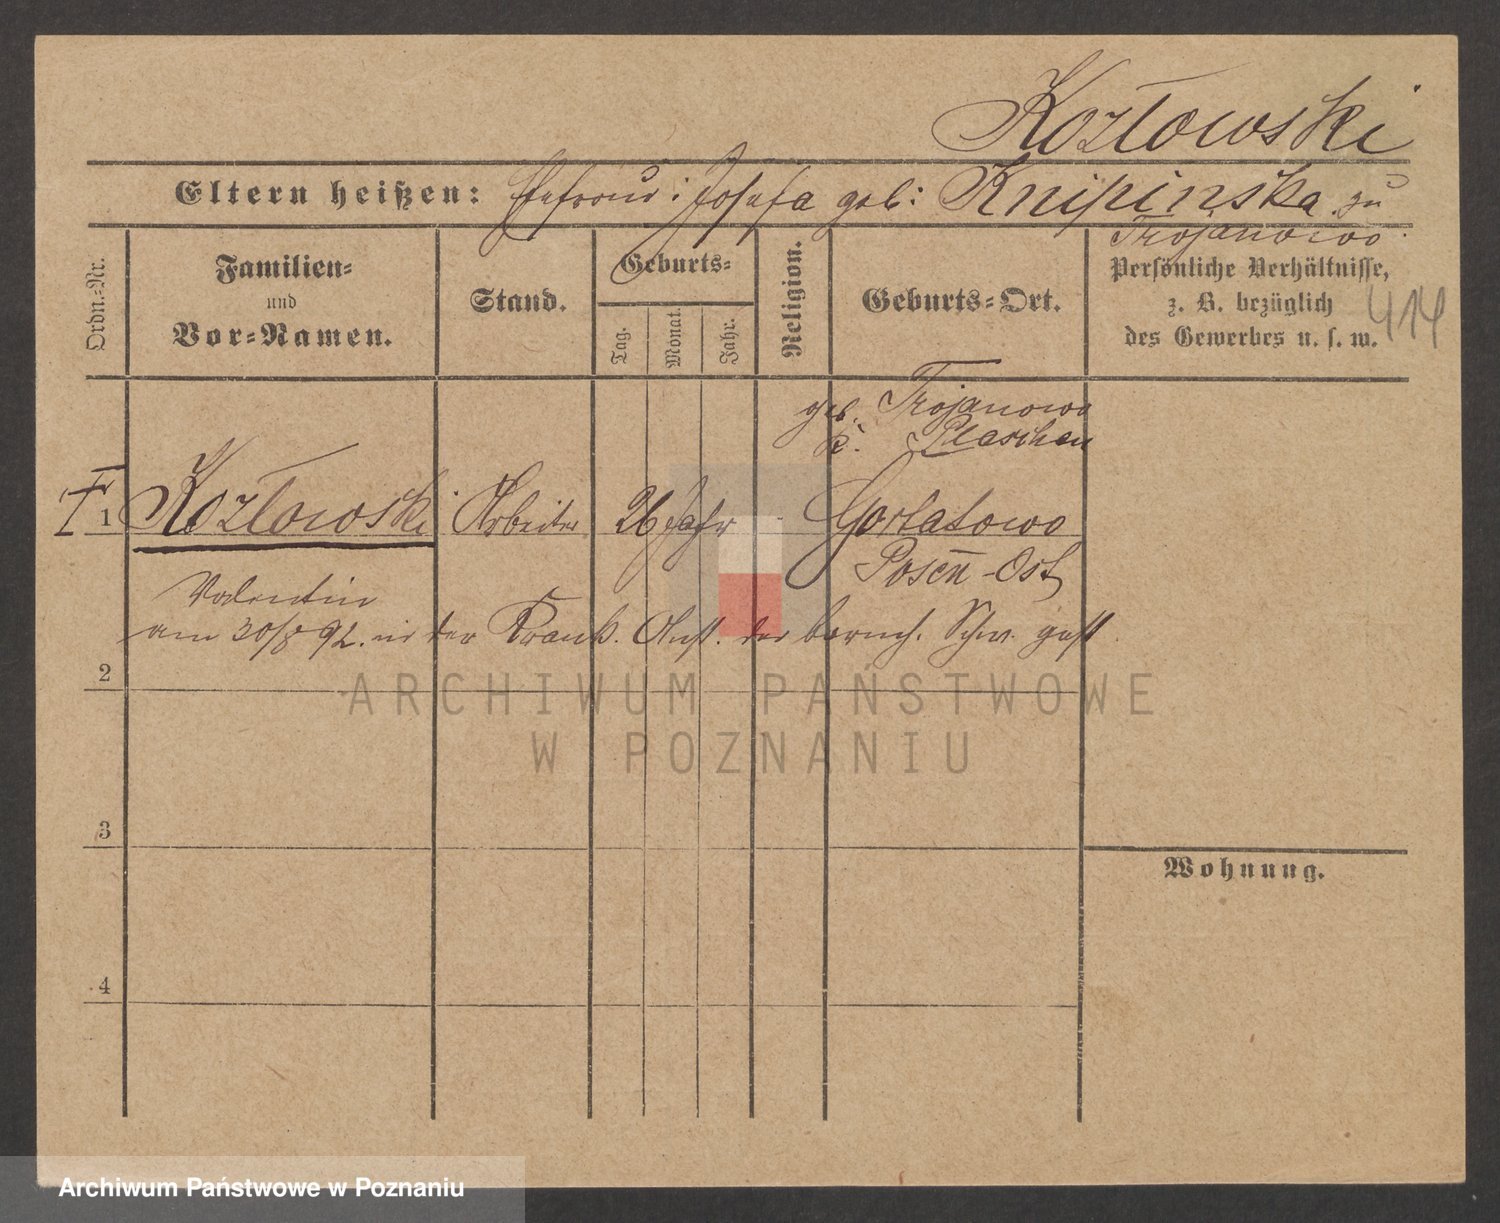 Kozłowski
Eltern heißen: Josefa geb: Knipinska zu
Trojanowo.
Ordn.-Nr.
Familien-
und
Vor-Namen.
Stand.
Geburts-
Tag.
Monat.
Jahr.
Religion.
Geburts-Ort.
Persönliche Verhältnisse,
z. B. bezüglich
des Gewerbes u. s. w.
414
geb. Trojanowo
K. Pleschen
1 Kozłowski Arbeiter 26 Jahr Gortatowo
Posen-Ost
Valentin
am 30/8 92. in der Krank. Anst. der barmh. Schw. gest.
2
ARCHIWUM PAŃSTWOWE
W POZNANIU
3
Wohnung.
4
Archiwum Państwowe w Poznaniu